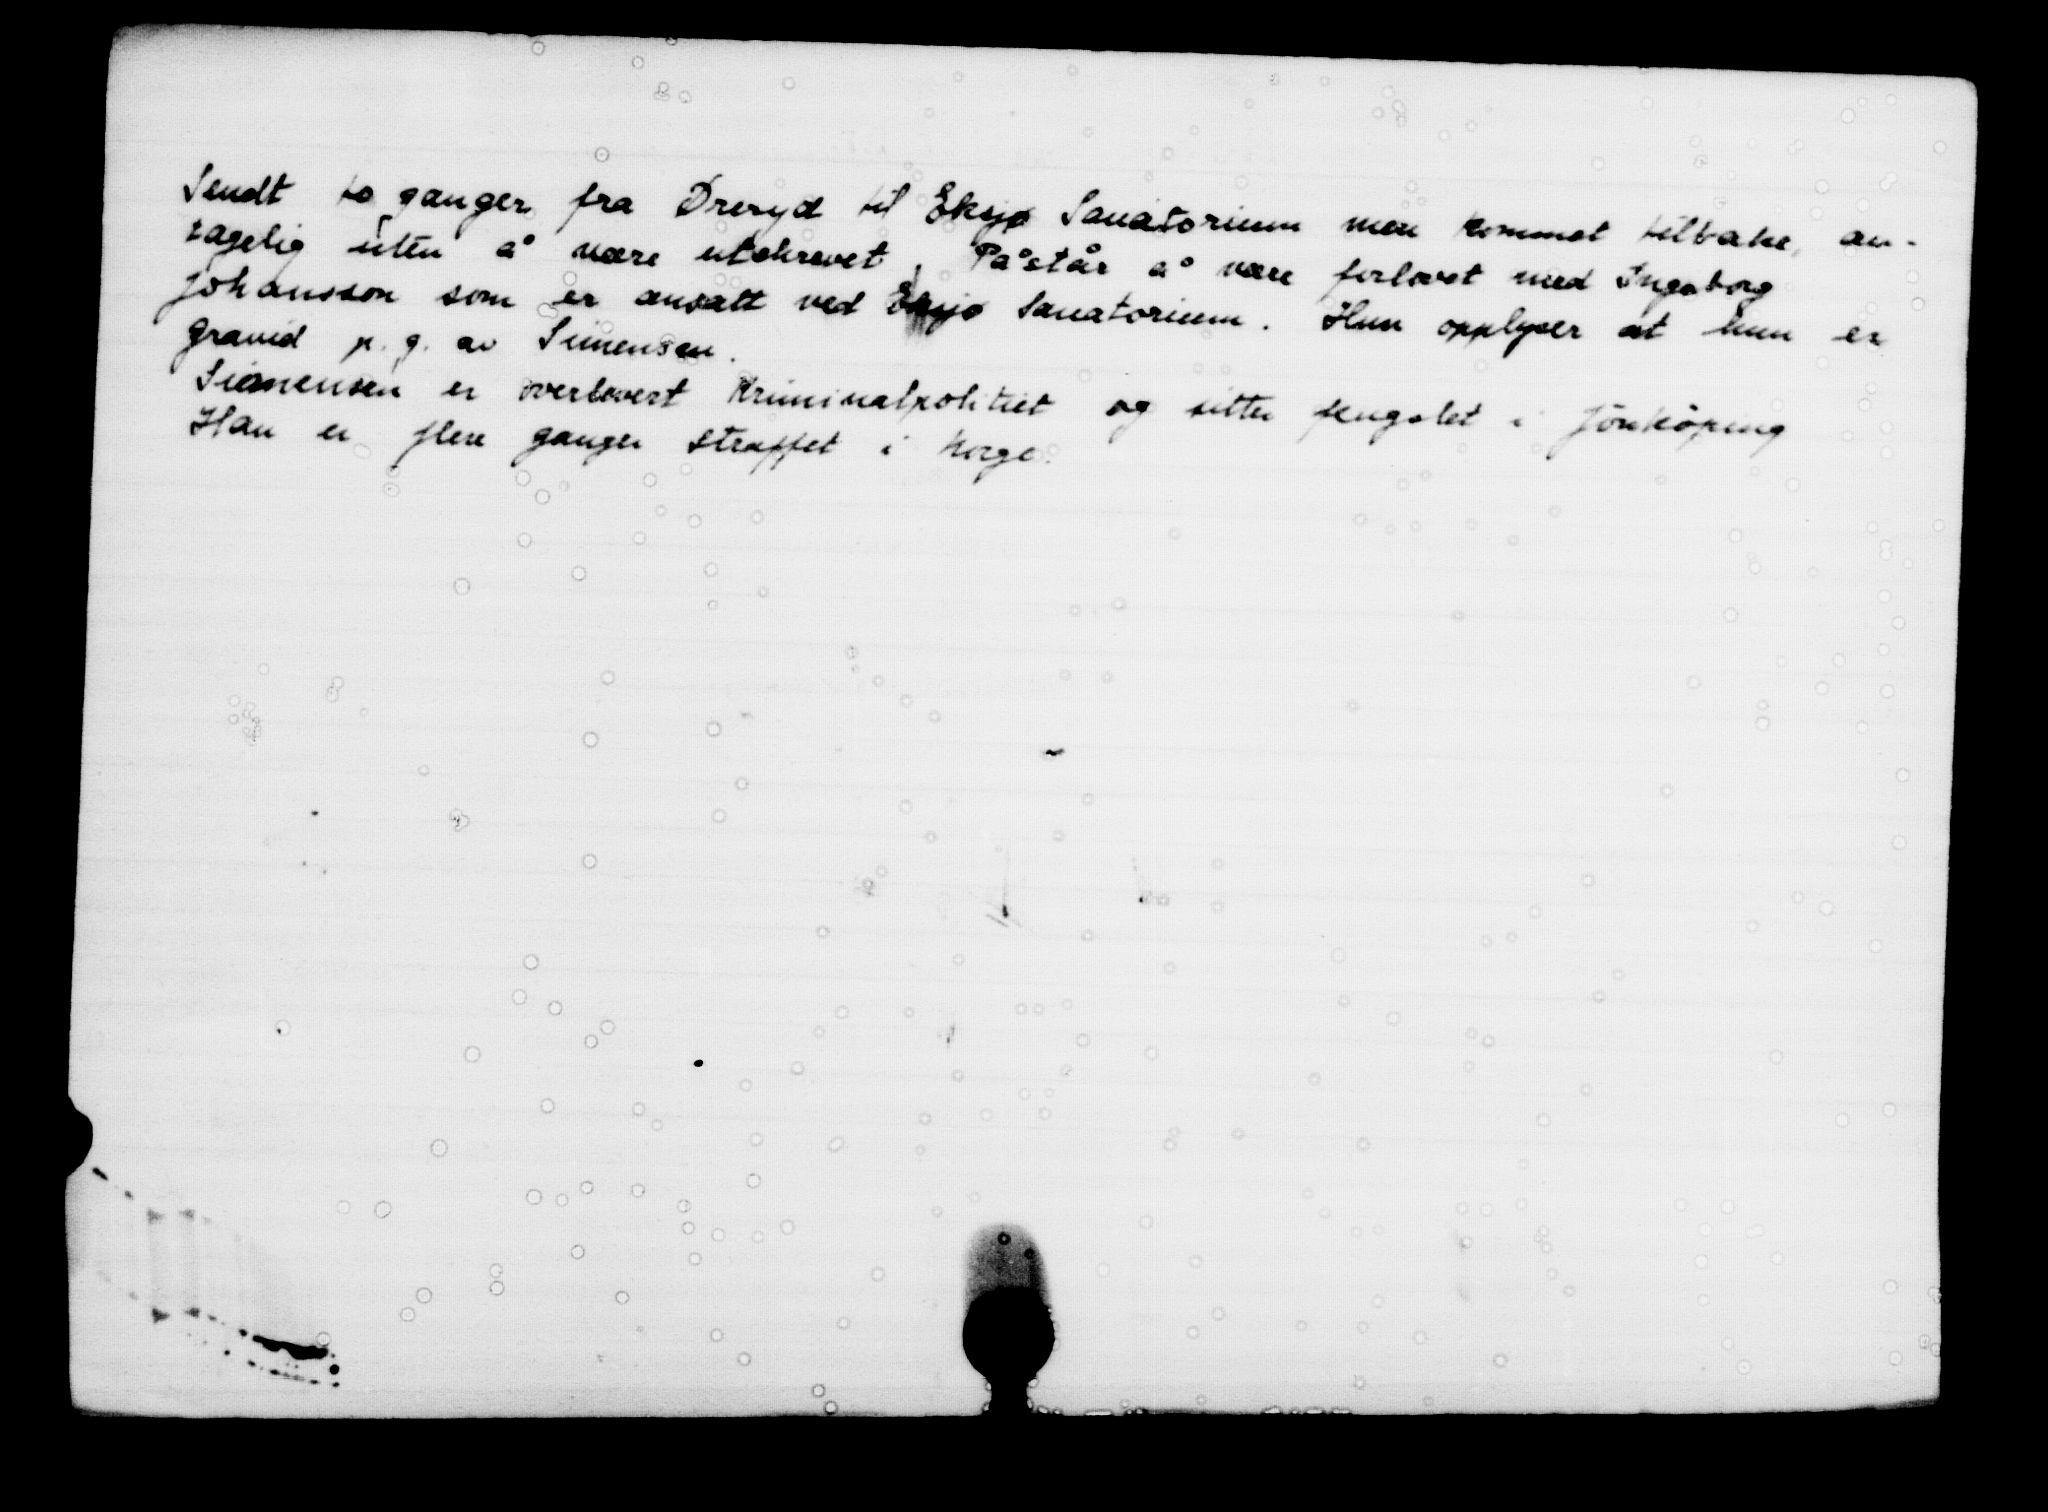 Sendt to ganger fra Öreryd til Eksjø Sanatorium men kommet tilbake, an-
tagelig uten å være utskrevet. Påstår å være forlovet med Ingeborg
Johansson som er ansatt ved Eksjø Sanatorium. Hun opplyser at hun er
gravid p. g. av Simensen.
Simensen er overlevert Kriminalpolitiet og sitter fengslet i Jönköping
Han er flere ganger straffet i Norge.